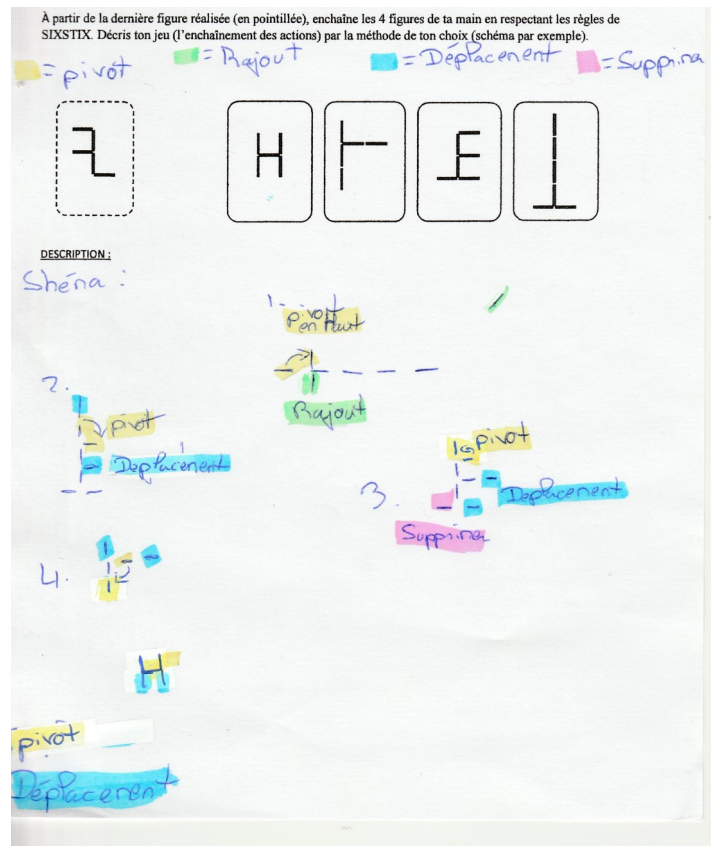 À partir de la dernière figure réalisée (en pointillée), enchaîne les 4 figures de ta main en respectant les règles de
SIXSTIX. Décris ton jeu (l'enchaînement des actions) par la méthode de ton choix (schéma par exemple).
= pivot = Rajout = Déplacement = Supprimer
DESCRIPTION :
Shéma :
1. pivot
en Haut
Rajout
2.
pivot
Deplacement
pivot
3.
Deplacement
Supprimer
4.
pivot
Déplacement